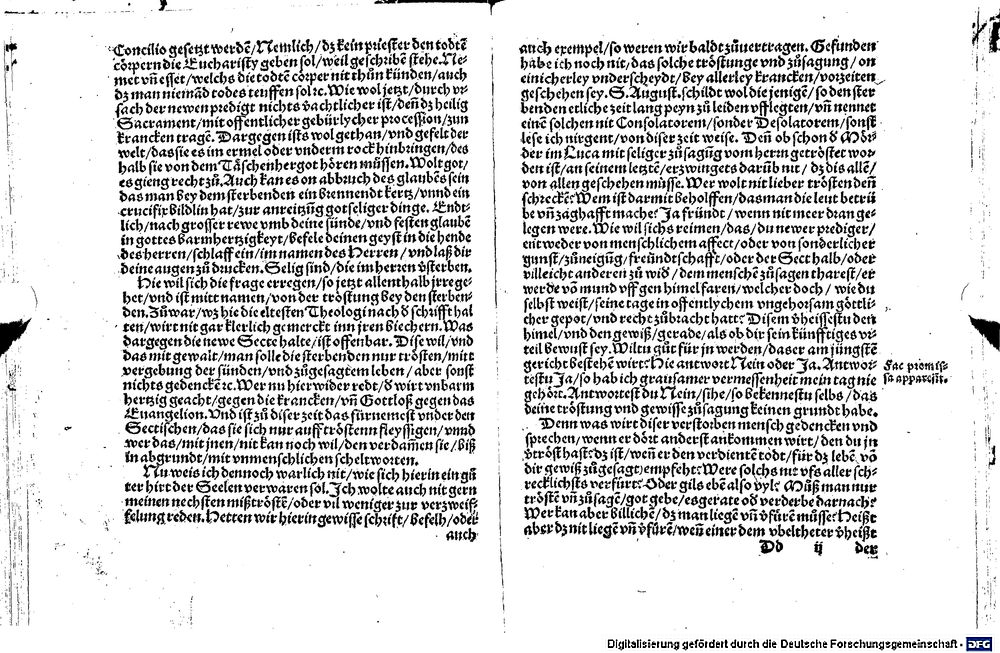 Concilio gesetzt werdē/Nemlich/dz kein priester den todtē
cörpern die Eucharisty geben sol/weil geschribē stehe. Ne-
met vñ esset/welchs die todtē cörper nit thůn künden/auch
dz man niemād todes teuffen sol ꝛc. Wie wol jetzt/durch vr-
sach der newen predigt nichts vachtlicher ist/deñ dz heilig
Sacrament/mit offentlicher gebürlycher procession/zun
krancken tragē. Dargegen ists wol gethan/vnd gefelt der
welt/das sie es im ermel oder vnderm rock hinbringen/des
halb sie von dem Täschenhergot hören müssen. Wolt got/
es gieng recht zů. Auch kan es on abbruch des glaubēs sein
das man bey dem sterbenden ein brennendt kertz/vnnd ein
crucifix bildlin hat/zur anreitzūg gotseliger dinge. Endt-
lich/nach grosser rewe vmb deine sünde/vnd festen glaubē
in gottes barmhertzigkeyt/befele deinen geyst in die hende
des herren/schlaff ein/im namen des Herren/vnd laß dir
deine augen zů drucken. Selig sind/die im herren v̄sterben.
Hie wil sich die frage erregen/so jetzt allenthalb jrrege-
het/vnd ist mitt namen/von der tröstung bey den sterben-
den. Zůwar/wz hie die eltesten Theologi nach d̄ schrifft hal
ten/wirt nit gar klerlich gemerckt inn jren biechern. Was
dargegen die newe Secte halte/ist offenbar. Dise wil/vnd
das mit gewalt/man solle die sterbenden nur trösten/mitt
vergebung der sünden/vnd zůgesagtem leben/aber sonst
nichts gedenckē ꝛc. Wer nu hier wider redt/d̄ wirt vnbarm
hertzig geacht/gegen die krancken/vñ Gottloß gegen das
Euangelion. Vnd ist zů diser zeit das fürnemest vnder den
Sectischen/das sie sich nur auff tröstenn fleyssigen/vnnd
wer das/mit jnen/nit kan noch wil/den verdam̄en sie/biß
in abgrundt/mit vnmenschlichen scheltworten.
Nu weis ich dennoch warlich nit/wie sich hierin ein gů
ter hirt der Seelen verwaren sol. Ich wolte auch nit gern
meinen nechsten mißtröstē/oder vil weniger zur verzweif-
felung reden. Hetten wir hierin gewisse schrift/befelh/oder
auch
auch exempel/so weren wir baldt zůuertragen. Gefunden
habe ich noch nit/das solche tröstunge vnd zůsagung/on
einicherley vnderscheydt/bey allerley krancken/vorzeiten
geschehen sey. S. August. schildt wol die jenigē/so den ster
benden etliche zeit lang peyn zů leiden vfflegten/vñ nennet
einē solchen nit Consolatorem/sonder Desolatorem/sonst
lese ich nirgent/von diser zeit weise. Deñ ob schon d̄ Mör-
der im Luca mit seliger zůsagūg vom herrn getröstet wor-
den ist/an seinem letztē/erzwingets darūb nit/dz dis allē/
von allen geschehen müsse. Wer wolt nit lieber tröstē deñ
schreckē? Wem ist darmit beholffen/das man die leut betrü
be vñ zaghafft mache? Ja fründt/wenn nit meer dran ge-
legen were. Wie wil sichs reimen/das/du newer prediger/
entweder von menschlichem affect/oder von sonderlicher
gunst/zůneigūg/freündtschafft/oder der Sect halb/oder
villeicht anderen zů wid̄/dem menschē zůsagen tharest/er
werde vō mund vff gen himel faren/welcher doch/wie du
selbst weist/seine tage in offentlychem vngehorsam göttli-
cher gepot/vnd recht zůbracht hatt? Disem v̄heissestu den
himel/vnd den gewiß/gerade/als ob dir sein künfftiges vr-
teil bewust sey. Wiltu gůt für jn werden/das er am jüngstē
gericht bestehē wirt? Hie antwort Nein oder Ja. Antwor-
testu Ja/so hab ich grausamer vermessenheit mein tag nie
gehört. Antwortest du Nein/sihe/so bekennestu selbs/das
deine tröstung vnd gewisse zůsagung keinen grundt habe.
Fac promis-
sa apparētis.
Denn was wirt diser verstorben mensch gedencken vnd
sprechen/wenn er dört anderst ankommen wirt/den du jn
v̄tröst hast? dz ist/weñ er den verdientē todt/für dz lebē vō
dir gewiß zůgesagt/empfeht? Were solchs nit vfs aller sch-
recklichsts verfürt? Oder gils ebē also vyl? Můß man nur
tröstē vñ zůsagē/got gebe/es gerate od̄ verderbe darnach?
Wer kan aber billichē/dz man liegē vñ v̄fürē müsse? Heißt
aber dz nit liegē vñ v̄fürē/weñ einer dem vbeltheter v̄heißt
Dd ij der
Digitalisierung gefördert durch die Deutsche Forschungsgemeinschaft - DFG